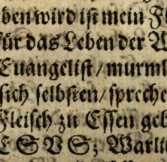 ben wird ist mein F
für das Leben der
Euangelist / murml
sich selbsten / spreche
Fleisch zu Essen geb
ESVS; Warli